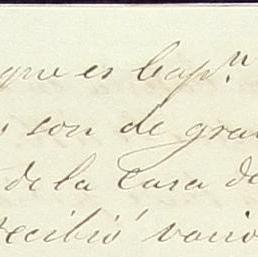 que es Capn
son de gra
de la Casa de
recibió vario